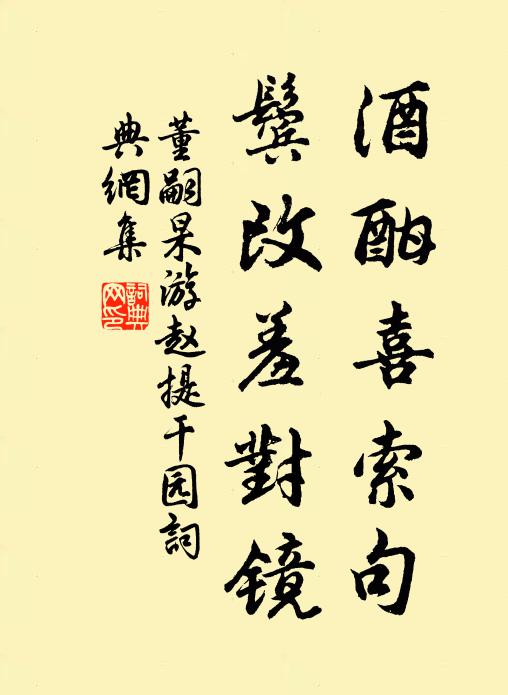 酒酣喜索句
鬓改羞對镜
董嗣杲游赵提干园詞
典網集
詞典网印